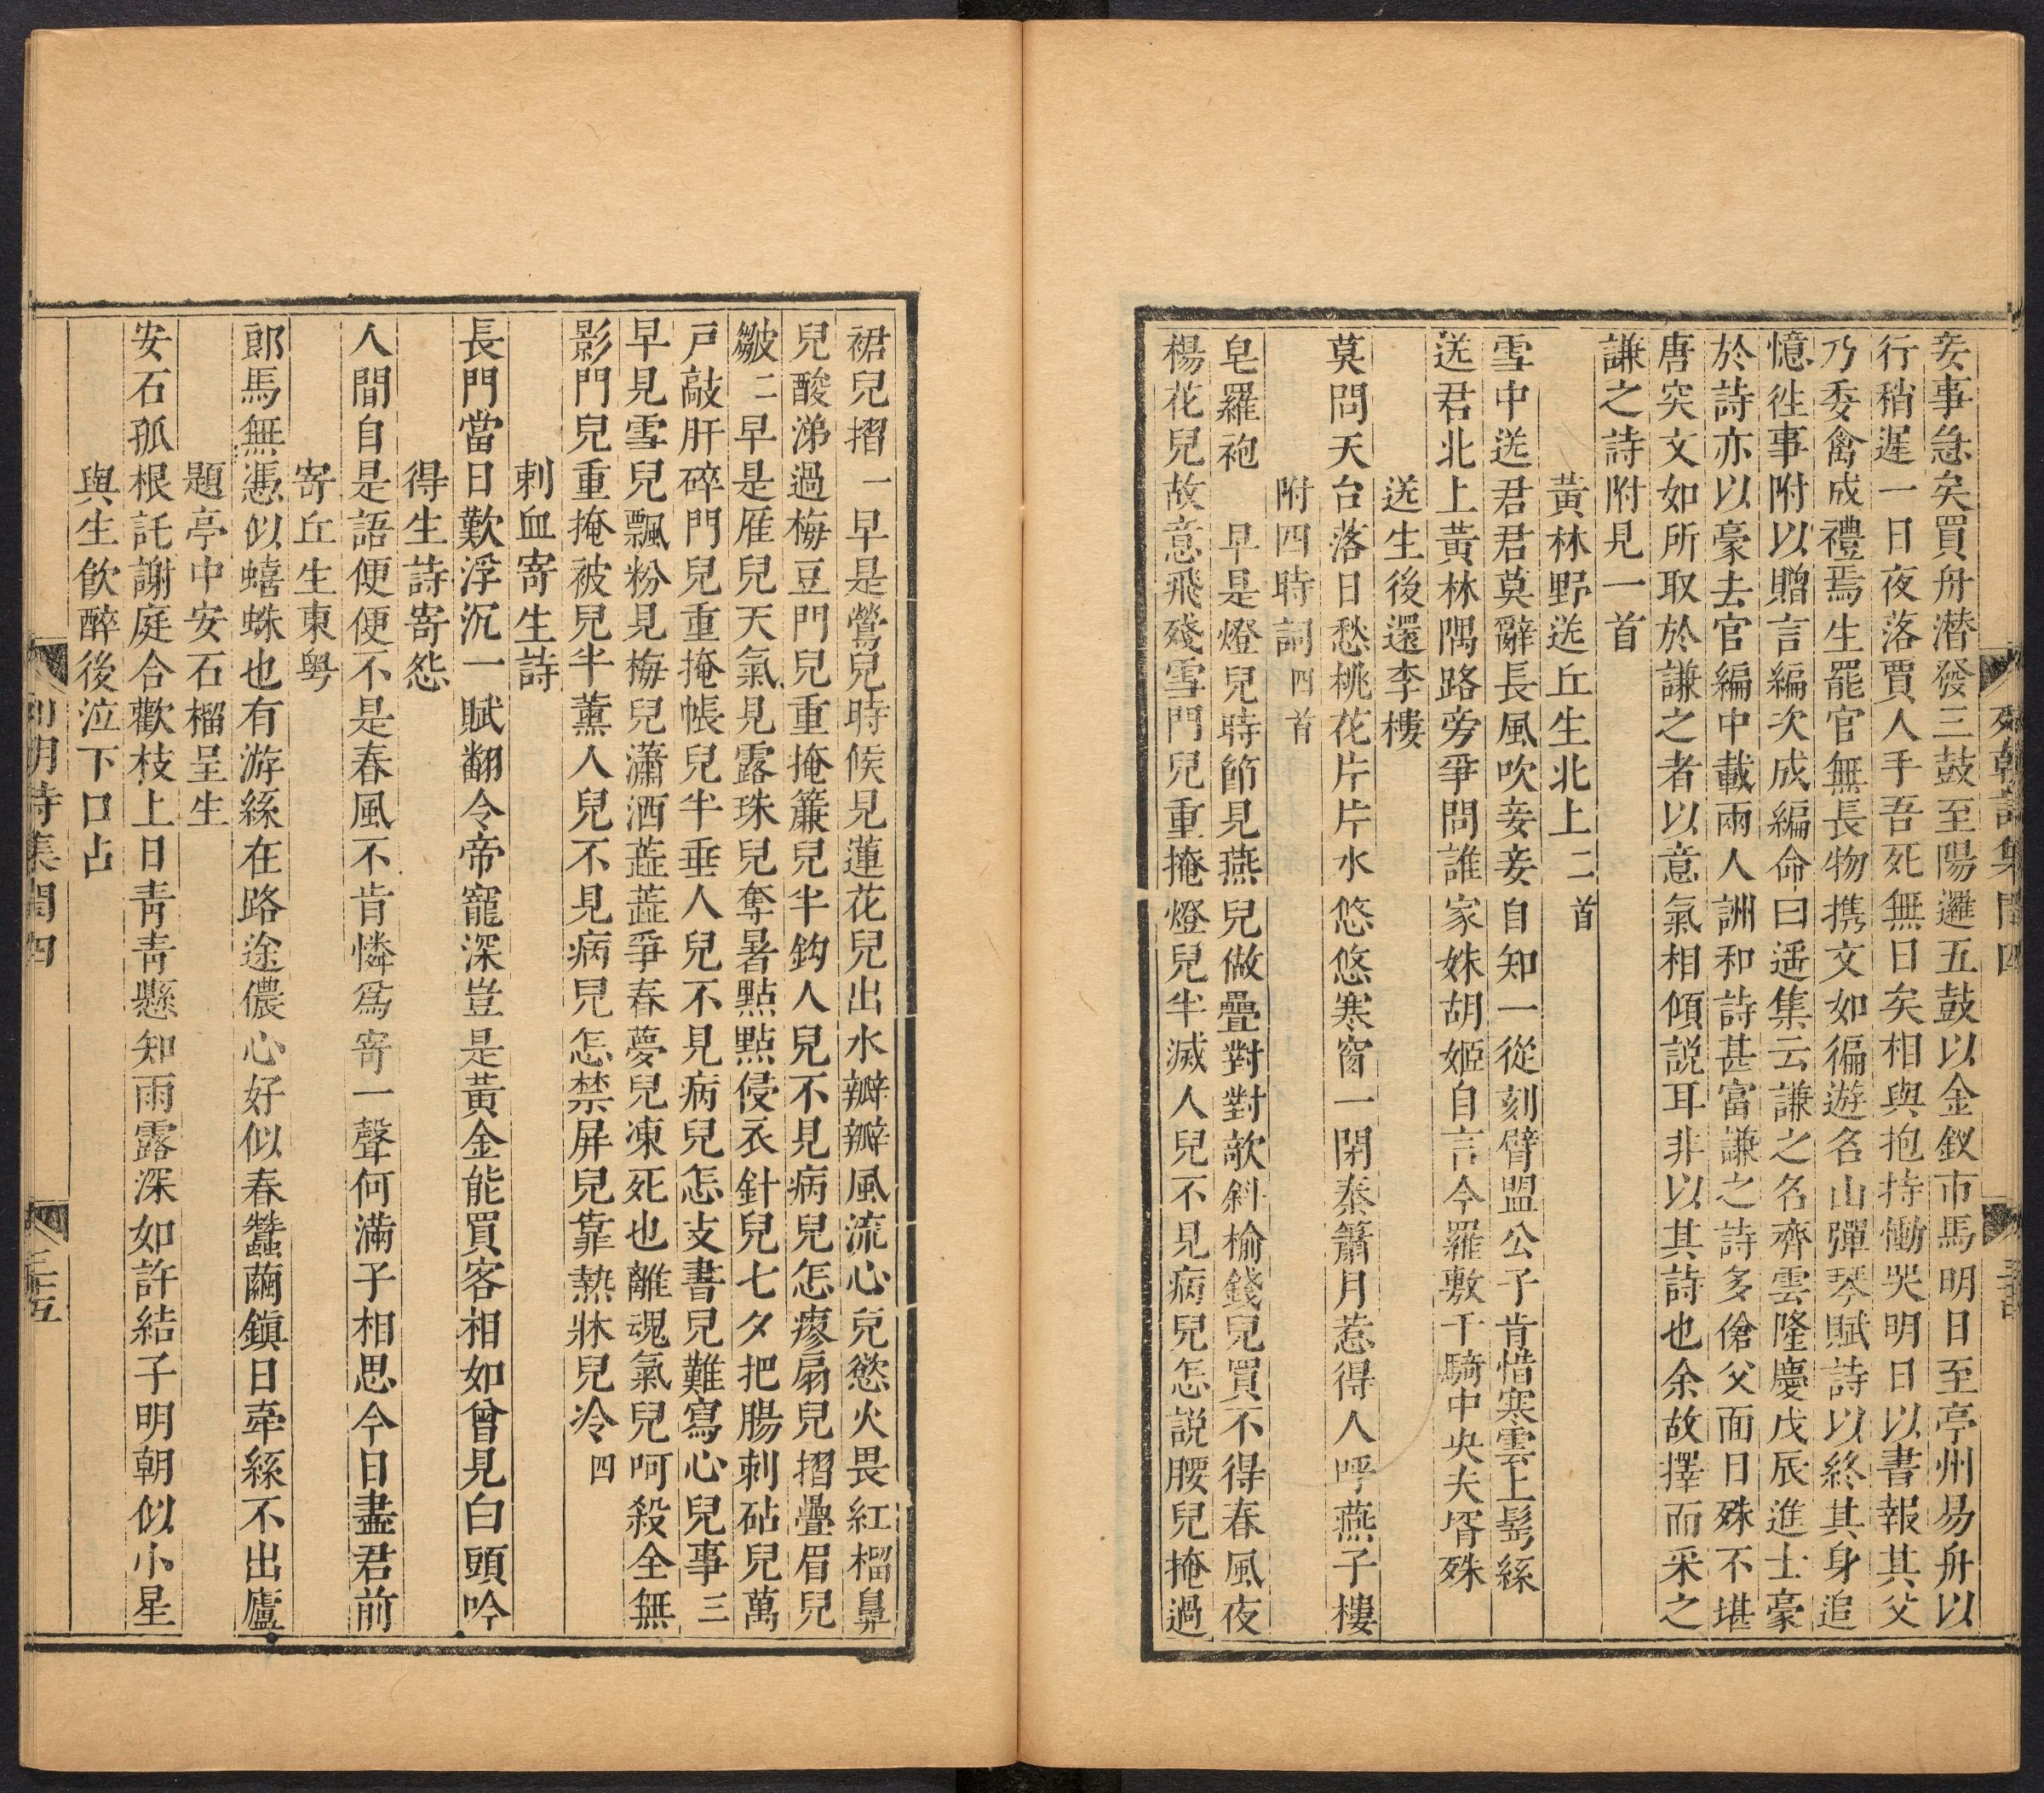 妾事急矣買舟潜發三鼓至陽邏五鼓以金釵市馬明日至亭州易舟以
行稍遲一日夜落賈人手吾死無日矣相與抱持慟哭明日以書報其父
乃委禽成禮焉生罷官無長物携文如徧遊名山彈琴賦詩以終其身追
憶徃事附以贈言編次成編命曰遥集云謙之名齊雲隆慶戊辰進士豪
於詩亦以豪去官編中載兩人詶和詩甚富謙之詩多傖父面目殊不堪
唐突文如所取於謙之者以意氣相傾説耳非以其詩也余故擇而采之
謙之詩附見一首
黃林野送丘生北上二首
雪中送君君莫辭長風吹妾妾自知一從刻臂盟公子肯惜寒雲上鬂絲
送君北上黃林隅路旁爭問誰家姝胡姬自言今羅敷千騎中央夫壻殊
送生後還李樓
莫問天台落日愁桃花片片水悠悠寒窗一閉秦簫月惹得人呼燕子樓
附四時詞四首
皂羅袍 早是燈兒時節見燕兒做疊對對欹斜榆錢兒買不得春風夜
楊花兒故意飛殘雪門兒重掩燈兒半滅人兒不見病兒怎説腰兒掩過
裙兒摺一早是鶯兒時候見蓮花兒出水瓣瓣風流心兒慾火畏紅榴鼻
兒酸涕過梅豆門兒重掩簾兒半鈎人兒不見病兒怎瘳扇兒摺疊眉兒
皺二早是雁兒天氣見露珠兒奪暑點點侵衣針兒七夕把腸刺砧兒萬
戸敲肝碎門兒重掩帳兒半垂人兒不見病兒怎支書兒難寫心兒事三
早見雪兒飄粉見梅兒瀟洒蘁蘁爭春夢兒凍死也離魂氣兒呵殺全無
影門兒重掩被兒半薰人兒不見病兒怎禁屏兒靠熱牀兒冷四
刺血寄生詩
長門當日歎浮沉一賦翻令帝寵深豈是黃金能買客相如曾見白頭吟
得生詩寄怨
人間自是語便便不是春風不肯憐爲寄一聲何滿子相思今日盡君前
寄丘生東粤
郞馬無憑似蟢蛛也有游絲在路途儂心好似春蠶繭鎭日牽絲不出廬
題亭中安石榴呈生
安石孤根託謝庭合歡枝上日靑靑懸知雨露深如許結子明朝似小星
與生飮醉後泣下口占